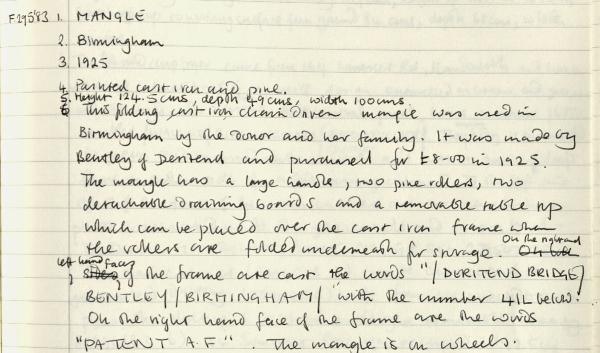 F295'83 1. MANGLE
2. Birmingham
3. 1925
4. Painted cast iron and pine.
5. Height 124.5 cms, depth 49 cms, width 100 cms
6 This folding cast iron chain driven mangle was used in
Birmingham by the donor and her family. It was made by
Bentley of Deritend and purchased for £8-00 in 1925.
The mangle has a large handle, two pine rollers, two
detachable draining boards and a removable table top
which can be placed over the cast iron frame when
the rollers are folded underneath for storage. On the right and
left hand faces of the frame are cast the words "/DERITEND BRIDGE/
BENTLEY/BIRMINGHAM/" with the number 41L below.
On the right hand face of the frame are the words
"PATENT A.F". The mangle is on wheels.